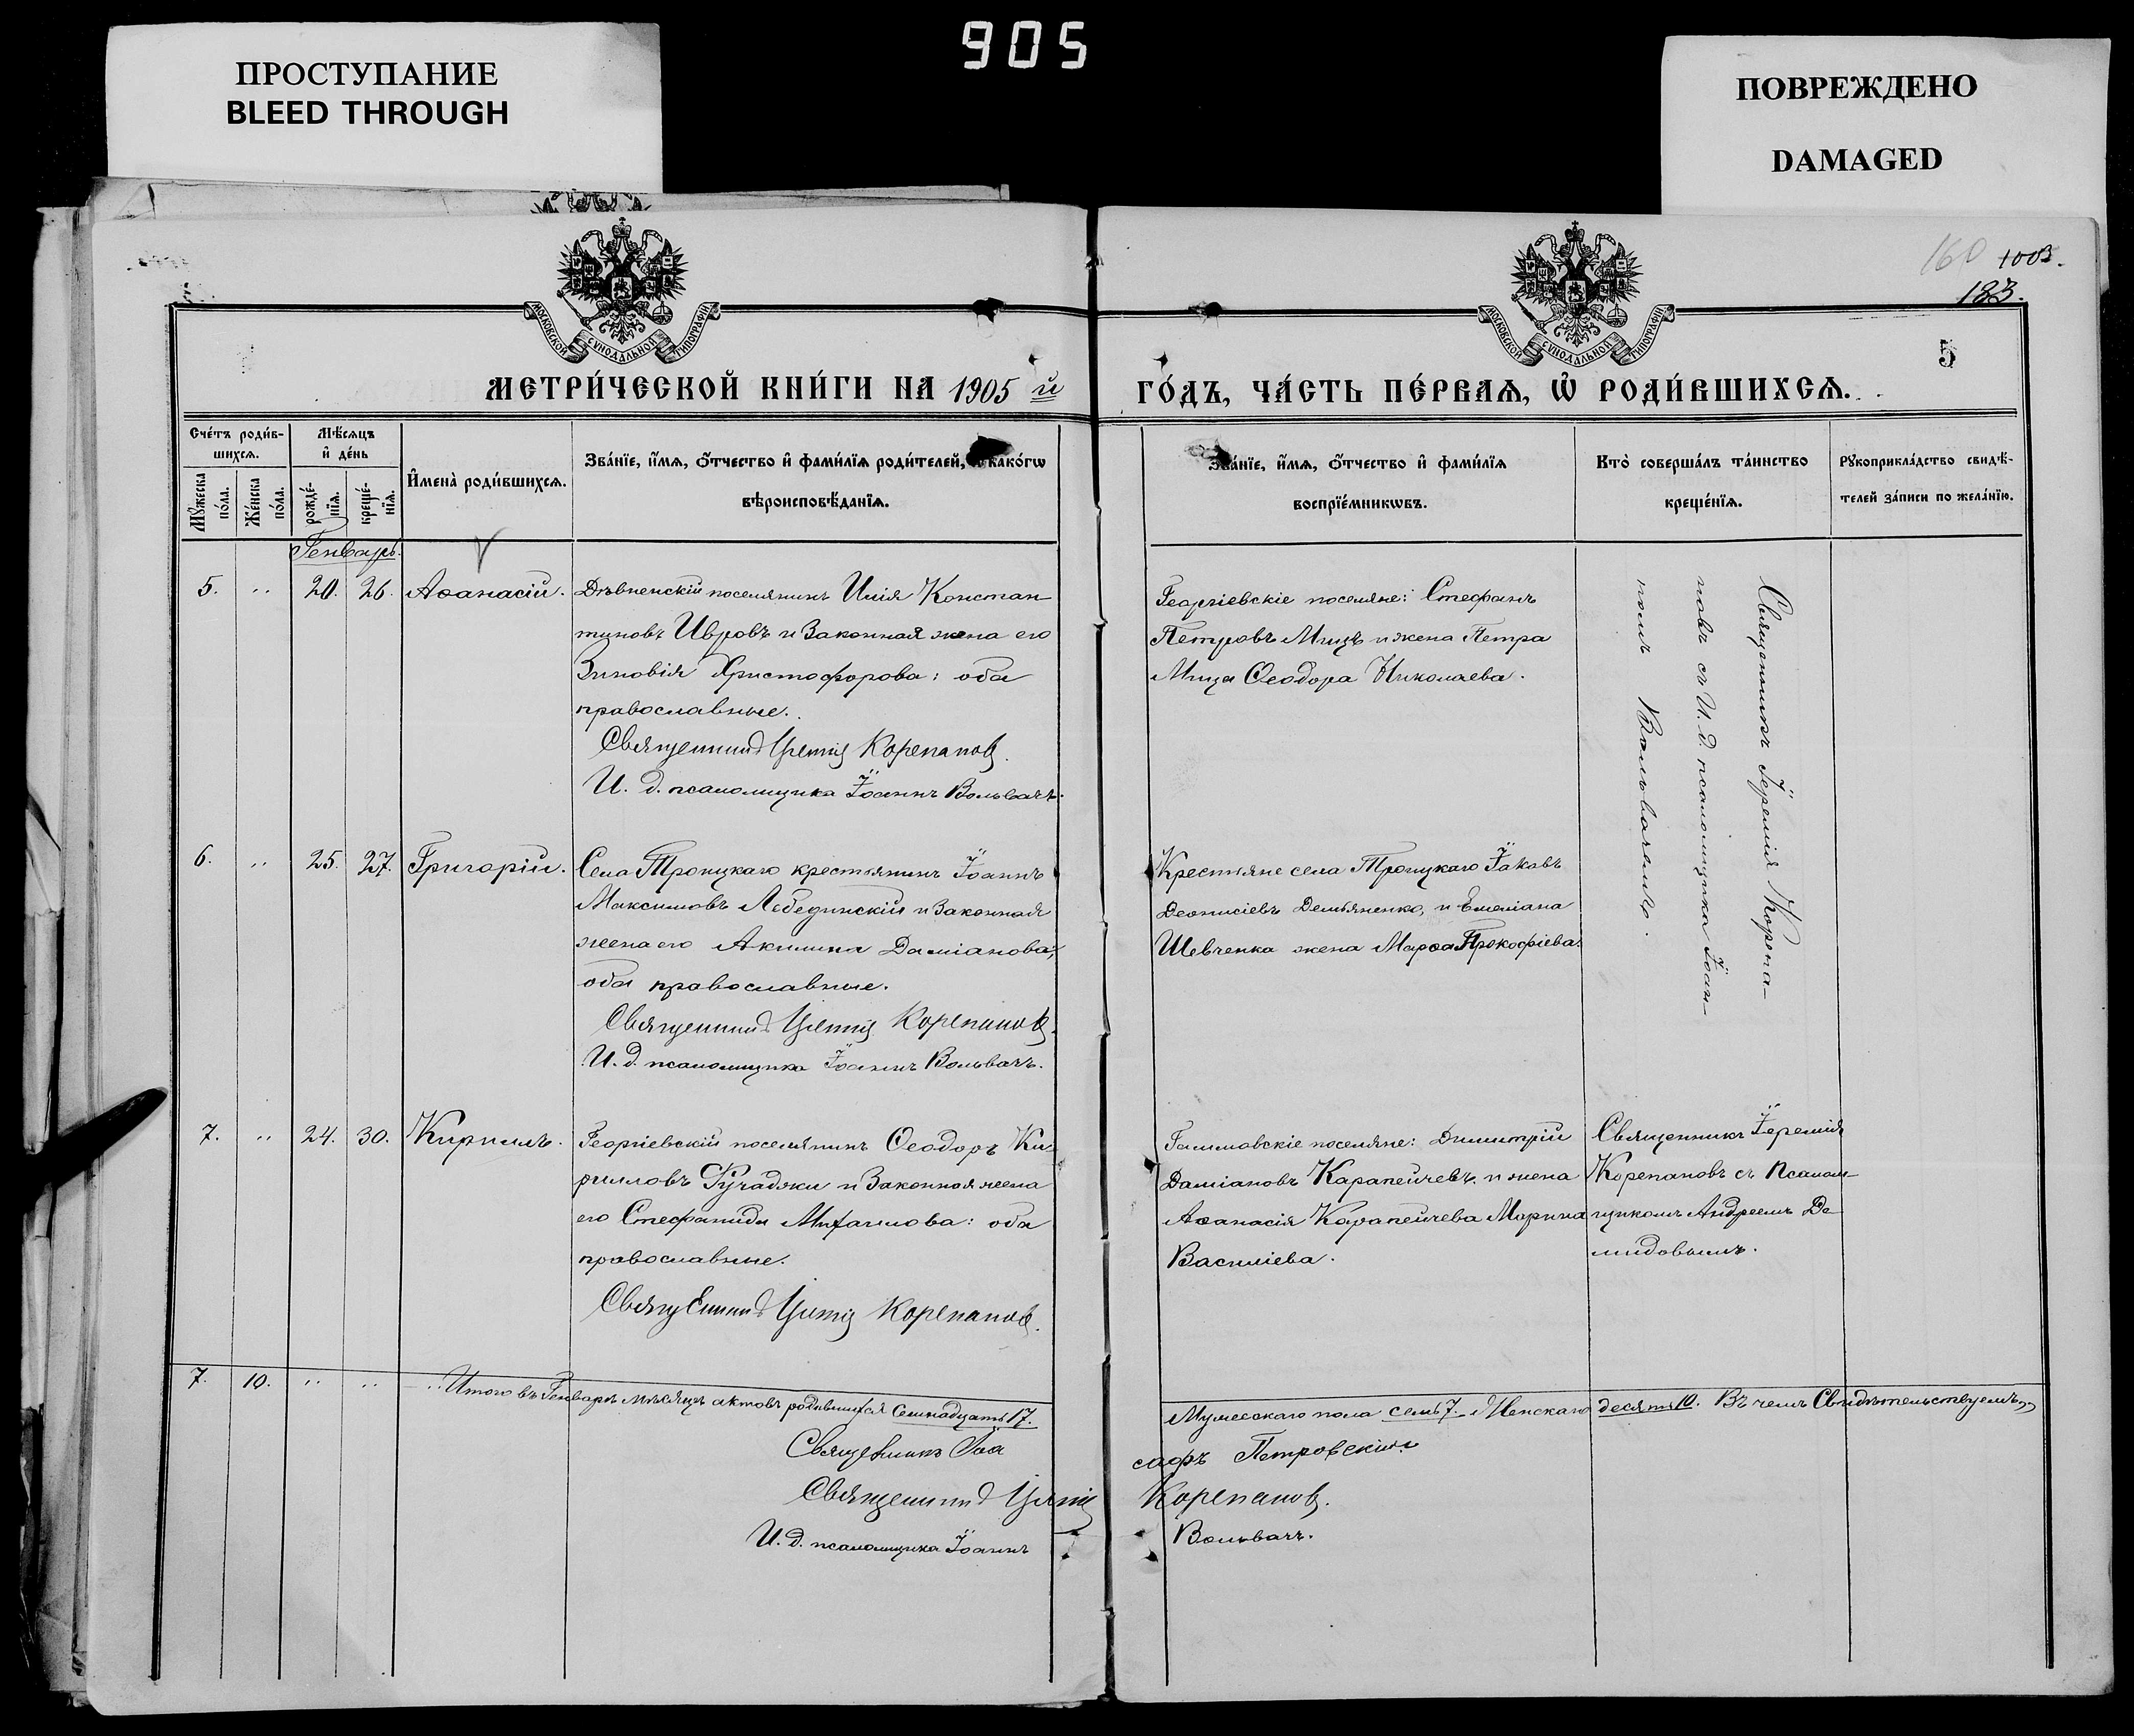 905
ПРОСТУПАНИЕ
BLEED THROUGH
ПОВРЕЖДЕНО
DAMAGED
160 1003.
183.
5
МОСКОВСКОЙ СѴНОДАЛЬНОЙ ТИПОГРАФІИ
МОСКОВСКОЙ СѴНОДАЛЬНОЙ ТИПОГРАФІИ
МЕТРИ́ЧЕСКОЙ КНИ́ГИ НА 1905 й
ГО́ДЪ, ЧА́СТЬ ПЕ́РВАѦ, Ѽ РОДИ́ВШИХСѦ.
Сче́тъ роди́в-
шихсѧ.
Мꙋ́жеска по́ла.
Же́нска по́ла.
Мѣ́сѧцъ и҆ де́нь
рожде́-нїѧ.
креще́-нїѧ.
И҆мена̀ роди́вшихсѧ.
Зва́нїе, и҆́мѧ, ѻ҆́тчество и҆ фами́лїѧ роди́телей, како́гѡ
вѣроисповѣ́данїѧ.
Зва́нїе, и҆́мѧ, ѻ҆́тчество и҆ фами́лїѧ
воспрїе́мникѡвъ.
Кто̀ соверша́лъ та́инство
креще́нїѧ.
Рꙋкоприкла́дство свидѣ́-
телей за́писи по жела́нїю.
Генварь.
5. " 20. 26. Аѳанасій.
Дѣвненскій поселянинъ Илія Констан
тиновъ Ивровъ и законная жена его
Зиновія Христофорова: оба
православные.
Священникъ Іеремія Корепановъ.
И. д. псаломщика Іоаннъ Вольвачъ.
Георгіевскіе поселяне: Стефанъ
Петровъ Мицъ и жена Петра
Мица Ѳеодора Николаева.
Священникъ Іеремія Корепа-
новъ съ И. д. псаломщика Іоан-
номъ Вольвачемъ.
6. " 25. 27. Григорій.
Села Троицкаго крестьянинъ Іоаннъ
Максимовъ Лебединскій и законная
жена его Акилина Даміанова;
оба православные.
Священникъ Іеремія Корепановъ.
И. д. псаломщика Іоаннъ Вольвачъ.
Крестьяне села Троицкаго Іаковъ
Діонисіевъ Демьяненко, и Емеліана
Шевченка жена Марѳа Прокофіева.
7. " 24. 30. Кириллъ.
Георгіевскій поселянинъ Ѳеодоръ Ки-
рилловъ Ручаджи и законная жена
его Стефанида Михаилова: оба
православные.
Священникъ Іеремія Корепановъ.
Даміановъ Карапейчевъ и жена
Аѳанасія Карапейчева Марина
Василіева.
Священникъ Іеремія
Корепановъ съ псалом-
щикомъ Андреемъ Де
мидовымъ.
7. 10. " " " Итого въ Генварѣ мѣсяцѣ актовъ родившихся семнадцать 17.
Мужескаго пола семь 7. Женскаго десять 10. Въ чемъ свидѣтельствуемъ
Священникъ Іоа
сафъ Петровскій
Священникъ Іеремія Корепановъ.
И. д. псаломщика Іоаннъ Вольвачъ.